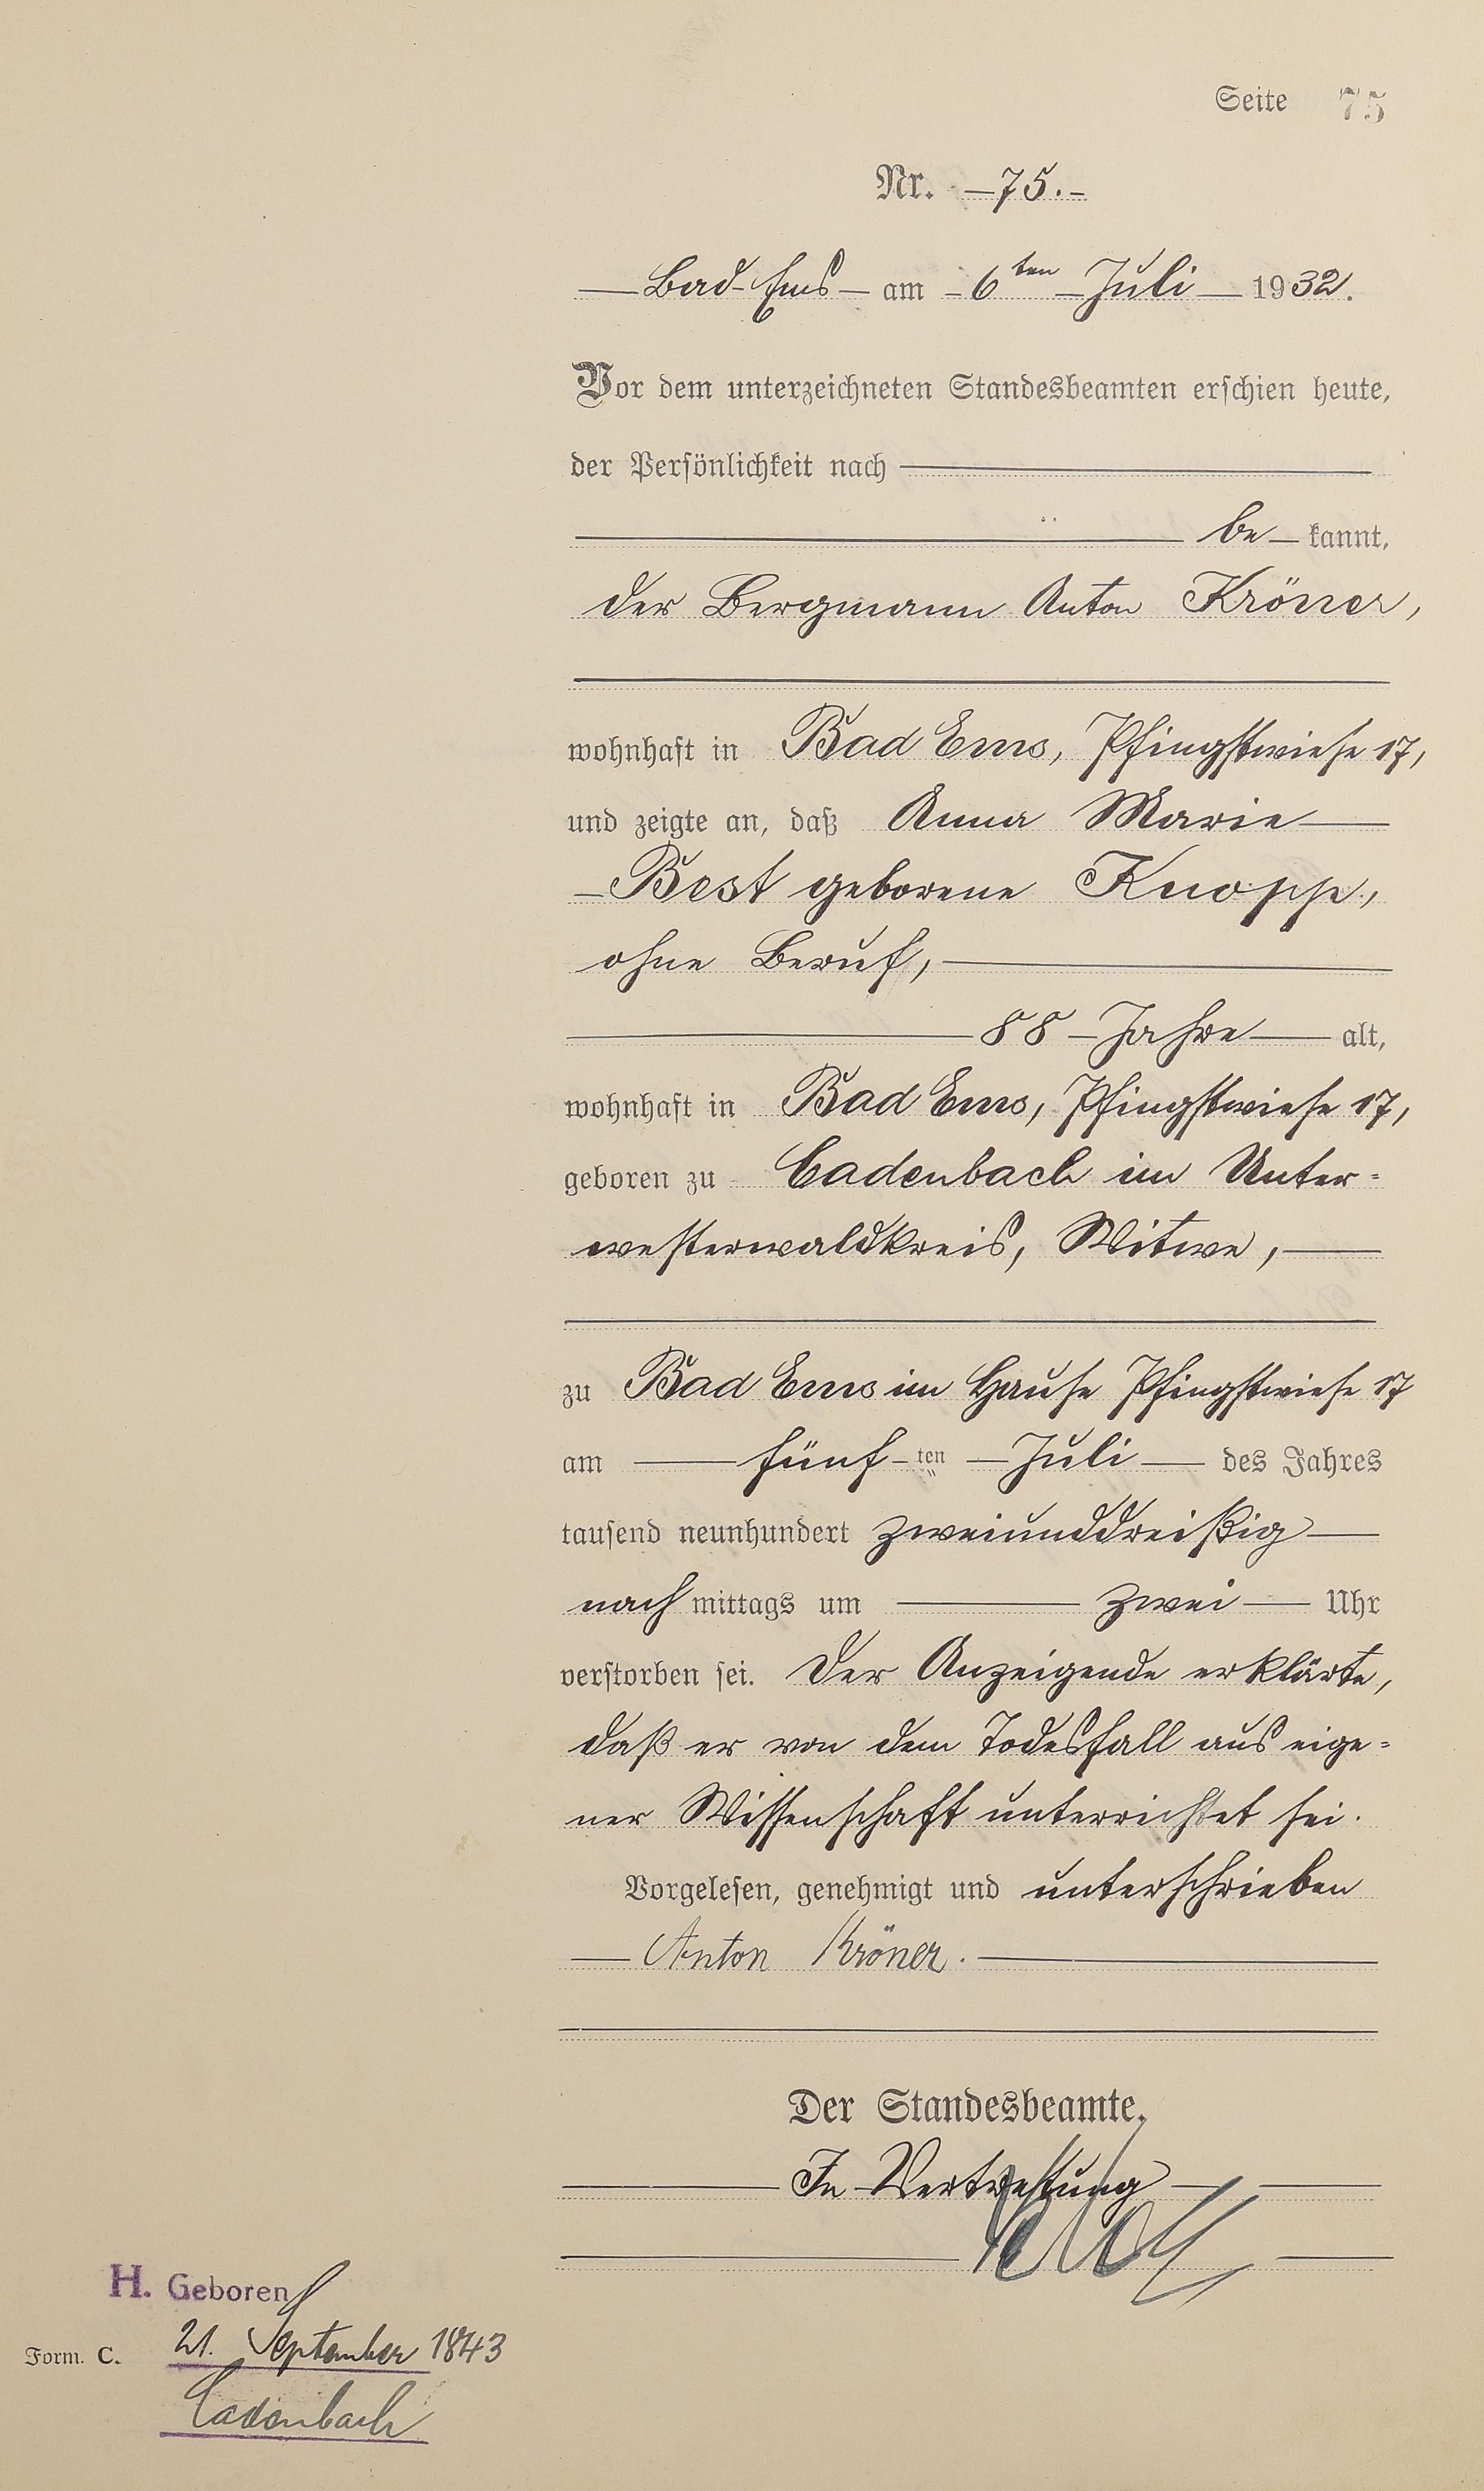 Seite 75
Nr. 75.
Bad Ems am 6ten Juli 1932.
Vor dem unterzeichneten Standesbeamten erschien heute,
der Persönlichkeit nach
be kannt,
der Bergmann Anton Kröner,
wohnhaft in Bad Ems, Pfingstwiese 17,
und zeigte an, daß Anna Marie
Best geborene Knopp,
ohne Beruf,
88 Jahre alt,
wohnhaft in Bad Ems, Pfingstwiese 17,
geboren zu Cadenbach im Unter-
westerwaldkreis, Witwe,
zu Bad Ems im Hause Pfingstwiese 17
am fünf ten Juli des Jahres
tausend neunhundert zweiunddreißig
nach mittags um zwei Uhr
verstorben sei. Der Anzeigende erklärte,
daß er von dem Todesfall aus eige-
ner Wissenschaft unterrichtet sei.
Vorgelesen, genehmigt und unterschrieben
Anton Kröner.
Der Standesbeamte.
In Vertretung
H. Geboren
Form. C. 21. September 1843
Cadenbach